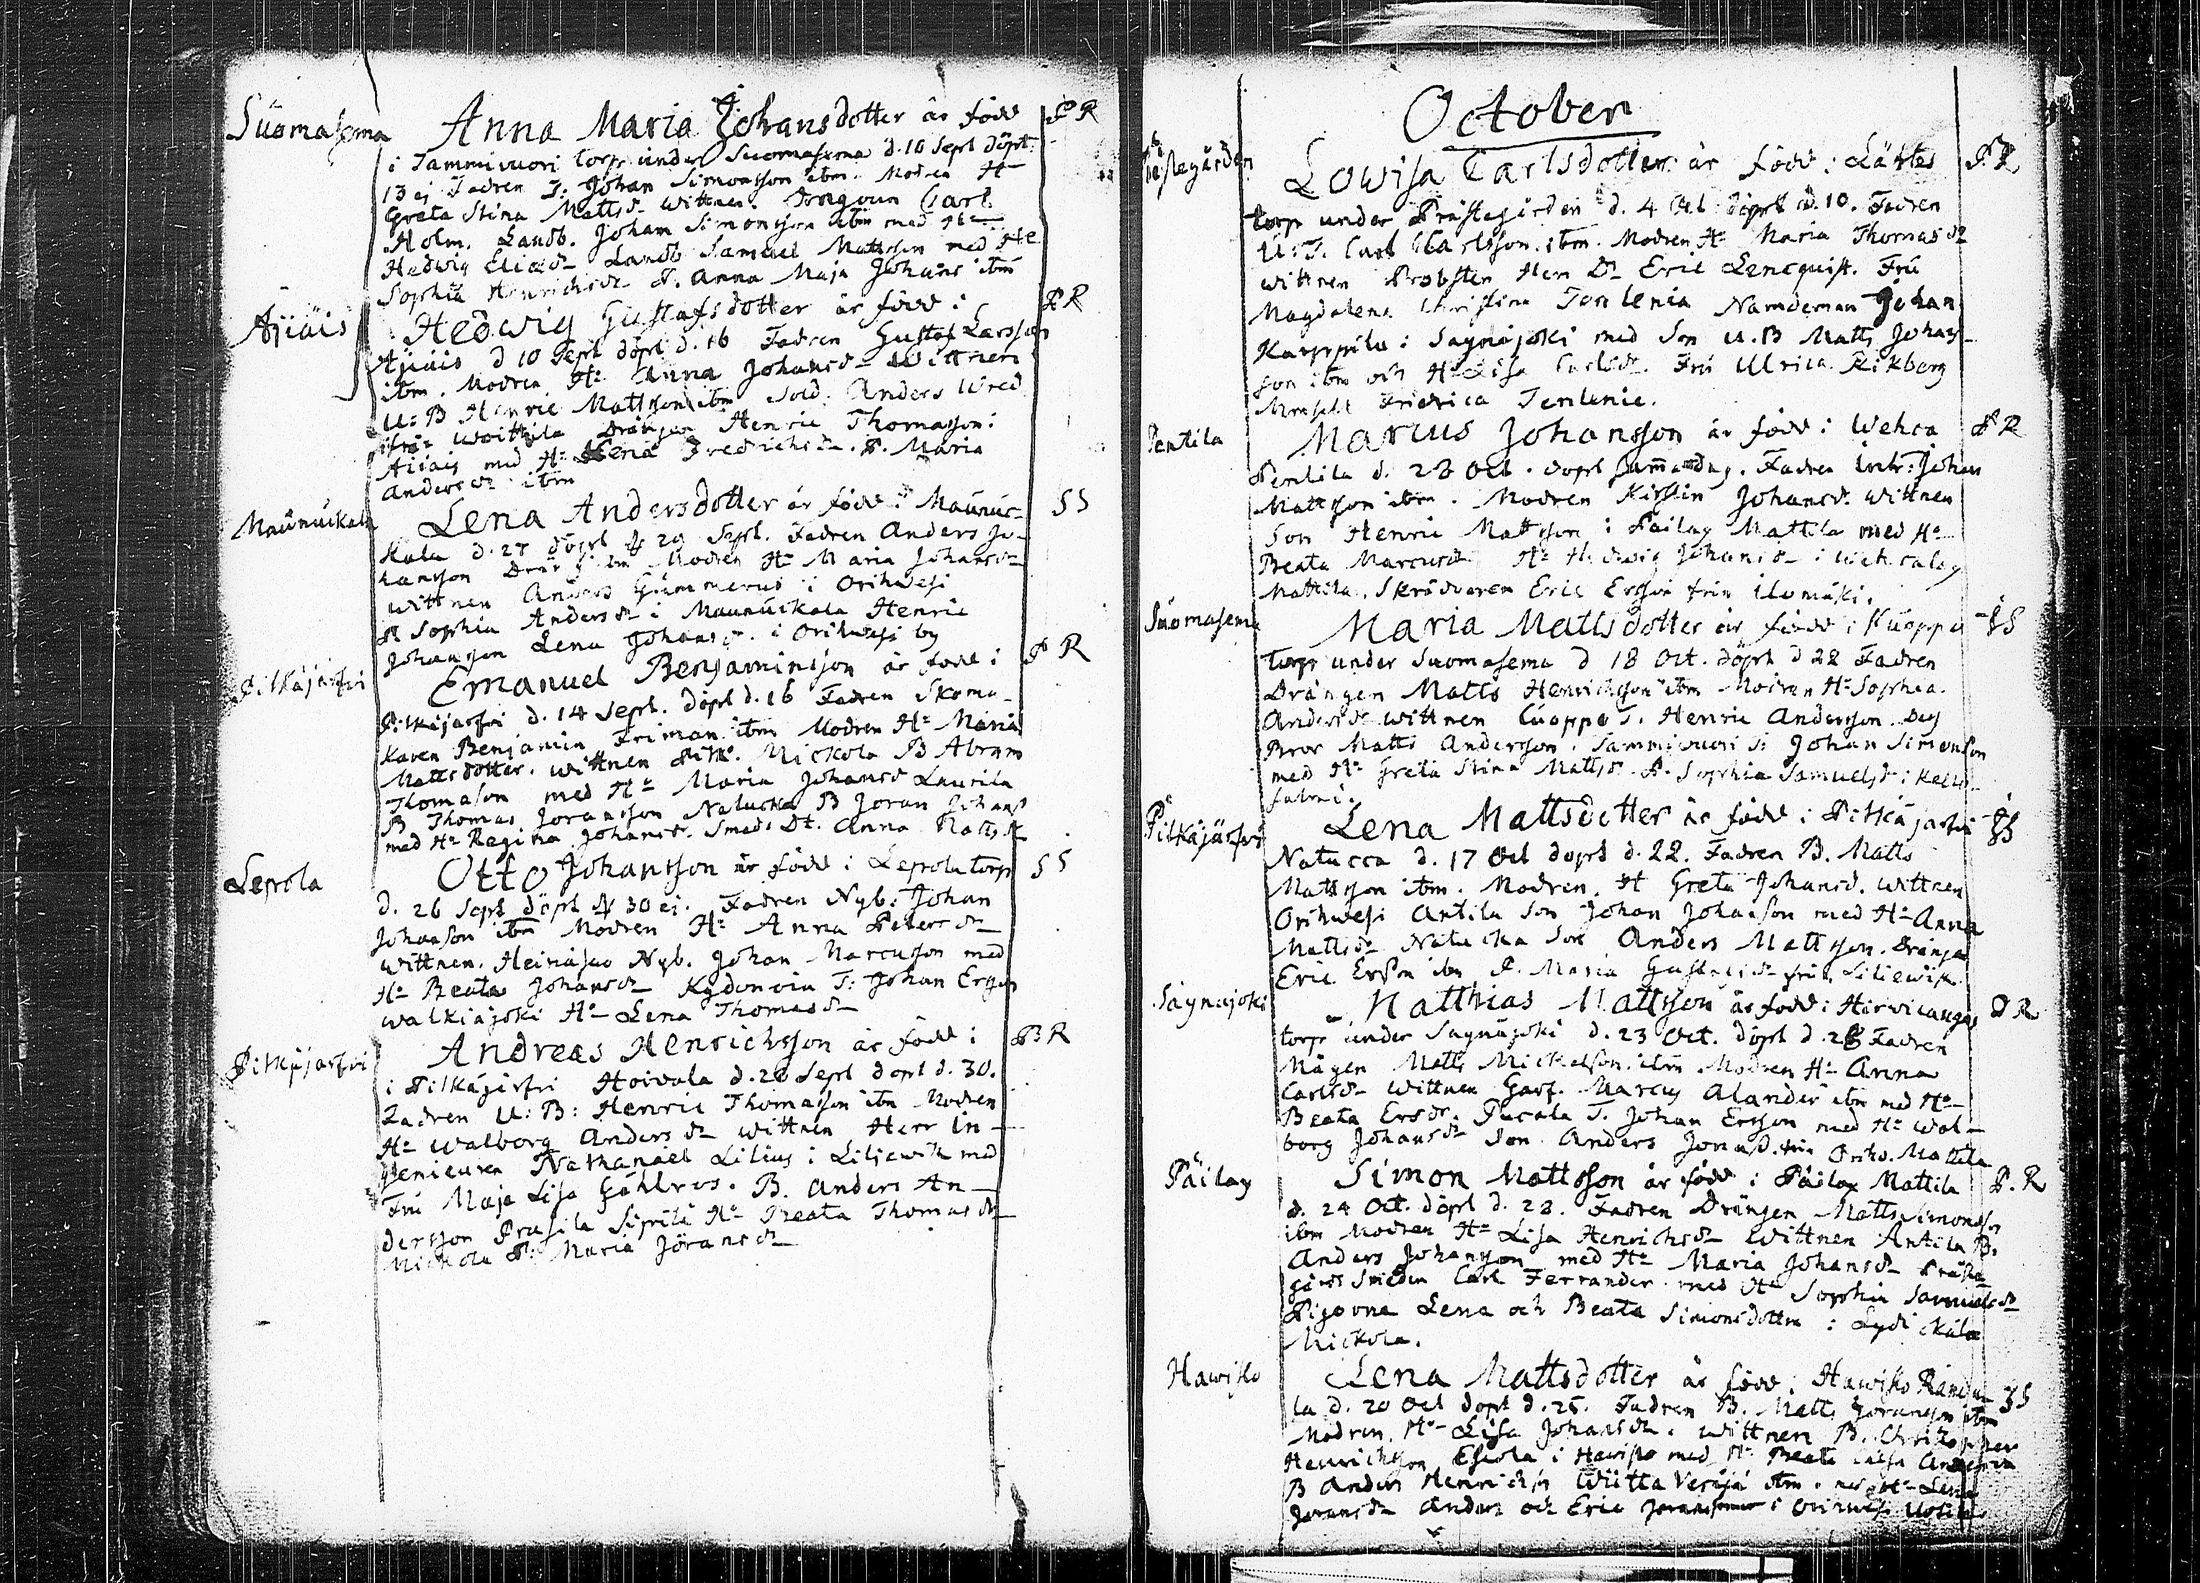 Suomasema Anna Maria Johansdotter är född PR
i Tammivuori torp under Suomasema d. 10 Sept döpt
13 ej Fadren T. Johan Simonsson ibm. Modren H
Greta Stina Mattsdr wittnen. Dragoun Carl
Holm. Landb. Johan Simonsson ibm med H
Hedwig Eliædr Landb Samuel Mattsson med H
Sophia Henrichsdr P. Anna Maja Johans ibm
Äjiäis Hedwig Gustafsdotter är född i PR
Äjiäis d 10 Sept döpt d. 16 Fadren Gustaf Larsson
ibm. Modren H Anna Johansdr Wittnen
U: B Henric Mattsson ibm Sold. Anders Wred
ifrån Woittila Drängen Henric Thomasson i
Äiiäis med H Lena Fredrichsdr. P. Maria
Andersdr ibm
Maunuickala Lena Andersdotter är född i Maunuic- SS
kala d. 27 döpt d 29 Sept. Fadren Anders Jo-
hansson Dräng ibm Modren H Maria Johansdr
wittnen Anders Gummerus i Orihwesi
P Sophia Andersdr i Maunuickala Henric
Johansson Lena Johansdr. i Orihwesi by
Pitkäjärfvi Emanuel Benjaminsson är född i PR
Pitkäjärfvi d. 14 Sept. döpt d. 16 Fadren Skoma-
karen Benjamin Friman ibm Modren H Maria
Mattsdotter. wittnen Pitk. Mickola B Abram
Thomason med H Maria Johansd Laurila
B Thomas Joransson Natucka B Joran Johans
med H Regina Johansdr. Smeds Dr. Anna Mattsdr
Lepola Otto Johansson är född i Lepola torp SS
d. 26 Sept döpt d 30 ej. Fadren Nyb: Johan
Johanson ibm Modren H Anna Petersdr
wittnen. Heinäjao Nyb. Johan Marcusson med
H Beata Johansdr Kydenvia T: Johan Ersson
walkiajoki H Lena Thomasdr
Pitkäjärfvi Andreas Henrichsson är född i PR
i Pitkäjärfvi Hoivala d. 28 Sept döpt d. 30.
Fadren U: B: Henric Thomasson ibm Modren
H Walborg Andersdr wittnen Herr In-
genieuren Nathanael Lilius i Liljewik med
Fru Maja Lisa Gahlros. B. Anders An-
dersson Prusila Siprilä H Beata Thomasdr
Mickola P: Maria Jöransdr
October
Prästegården Lowisa Carlsdotter är född i Lättes PR
torp under Prästegården d. 4 Oct döpt d. 10. Fadren
U: T. Carl Carlsson ibm. Modren H Maria Thomasdr
wittnen Probsten Herr Dr Eric Lencquist. Fru
Magdalena Christina Forslenia Namdeman Johan
Karppila i Sagnajoki med Son U. B Matts Johans-
son ibm och H Lisa Carlsdr. Fru Ulrica Rikberg
Mamsell Fredrica
Pentila Marcus Johansson är född i Wehca PR
Pentila d. 28 Oct. döpt samma dag. Fadren Johan
Mattsson ibm. Modren Kirstin Johansd. wittnen
Son Henric Mattsson i Päilax Mattila med H
Beata Marcusdr H Hedwig Johansdr i
Mattila. Skräddaren Eric Ersson från Ilomäki.
Suomasema Maria Mattsdotter är född i Kuoppa SS
Torp under Suomasema d 18 Oct. döpt d 22 Fadren
Drängen Matts Henrichsson ibm Modren H Sophia
Andersdr wittnen Cuoppa T. Henric Andersson. Des
Bror Matts Andersson. Tammivuori T: Johan Simonson
med H Greta Stina Mattsdr. P. Sophia Samuelsdr i Kello-
salmi.
Pitkäjärfvi Lena Mattsdotter är född i Pitkäjärfvi SS
Natucca d. 17 Oct döpt d. 22. Fadren B. Matts
Mattsson ibm. Modren. H Greta Johansd. wittnen
Orihwesi Antila son Johan Johanson med H Anna
Mattsdr Natucka son Anders Mattsson. Drängen
Eric Ersson ibm P. Maria Gustafsdr från Liliewik
Säynäjoki Matthias Mattsson är född i Hirvicangas PR
torp under Saynäjoki d. 23 Oct. döpt d. 28 Fadren
Mågen Matts Mickelson ibm Modren H Anna
Carlsdr Wittnen Garf. Marcus Alander ibm med H
Beata Ersdr. Pucala T. Johan Ersson med H Wal-
borg Johansdr Son Anders Jonasd. från Orihv. Mattila
Päilax Simon Mattsson är född i Päilax Mattila P. R
d. 24 Oct. döpt d. 28. Fadren Drängen Matts Simonsson
ibm Modren H Lisa Henrichsdr Wittnen Antila B.
Anders Johansson med H Maria Johansdr Präste
gårds Smeden Carl Ferrander med H Sophia Samuelsdr
Pigorna Lena och Beata Simonsdotter i Lydickälä
Mickola.
Hawisto Lena Mattsdotter är född i Hawisto Randa- SS
la d. 20 Oct döpt d. 25. Fadren B. Matts Joransson ibm
Modren. H Lisa Johansdr. wittnen B. Christopher
Henrichsson Eskola i Hawisto med H Beata Lisa
B Anders Henrichss Wiitta ibm med H Lena
Joransdr Anders och Eric Joranssöner i Orihwesi